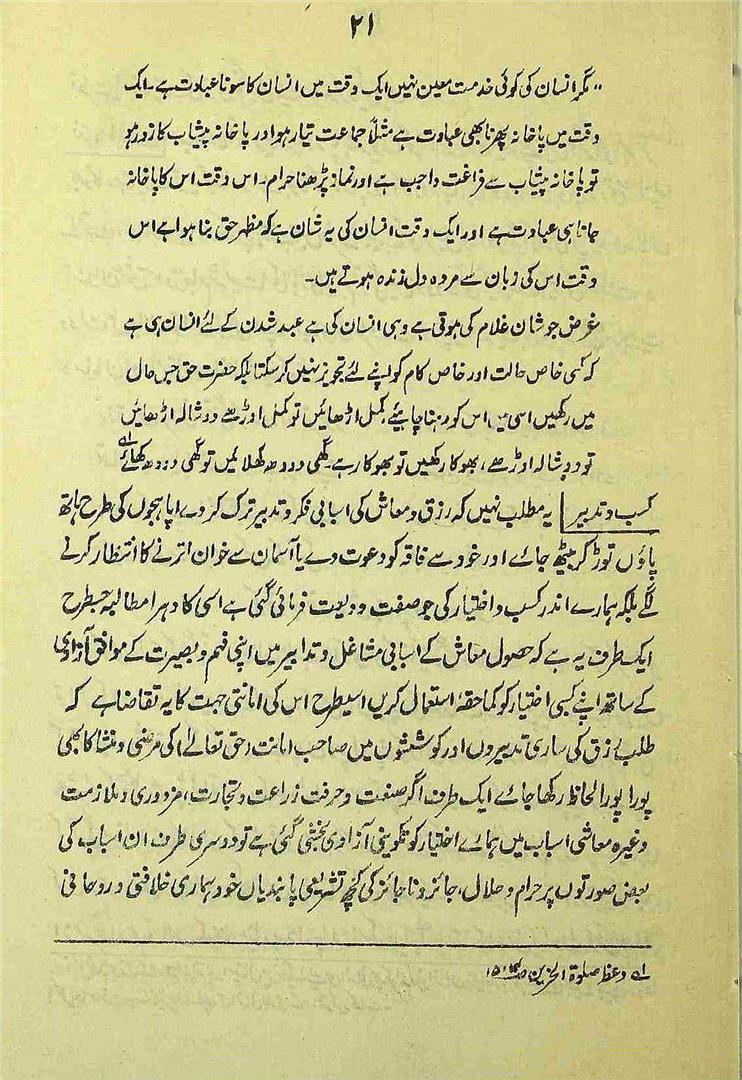 ۲۱
"مگر انسان کی کوئی خدمت معین نہیں ایک وقت میں انسان کا سونا عبادت ہے۔ ایک
وقت میں پاخانہ پھرنا بھی عبادت ہے مثلاً جماعت تیار ہو اور پاخانہ پیشاب کا زور ہو
تو پاخانہ پیشاب سے فراغت واجب ہے اور نماز پڑھنا حرام۔ اس وقت اس کا پاخانہ
جانا ہی عبادت ہے اور ایک وقت انسان کی یہ شان ہے کہ مظہر حق بنا ہوا ہے اس
وقت اس کی زبان سے مردہ دل زندہ ہوتے ہیں۔
غرض جو شان غلام کی ہوتی ہے وہی انسان کی ہے عبد شدن کے لئے انسان ہی ہے
کہ کسی خاص حالت اور خاص کام کو اپنے لئے تجویز نہیں کر سکتا بلکہ حضرت حق جس حال
میں رکھیں اسی میں اس کو رہنا چاہیئے، کمل اڑھائیں تو کمل اوڑھے دوشالہ اڑھائیں
تو دوشالہ اوڑھے، بھوکا رکھیں تو بھوکا رہے۔ گھی دودھ کھلائیں تو گھی دودھ کھائے لہ
کسب و تدبیر | یہ مطلب نہیں کہ رزق و معاش کی اسبابی فکر و تدبیر ترک کر دے، اپاہجوں کی طرح ہاتھ
پاؤں توڑ کر بیٹھ جائے اور خود سے فاقہ کو دعوت دے یا آسمان سے خوان اترنے کا انتظار کرنے
لگے بلکہ ہمارے اندر کسب و اختیار کی جو صفت ودیعت فرمائی گئی ہے اسی کا دہرا مطالبہ جسطرح
ایک طرف یہ ہے کہ حصول معاش کے اسبابی مشاغل و تدابیر میں اپنی فہم و بصیرت کے موافق آزادی
کے ساتھ اپنے کسبی اختیار کو کماحقہٗ استعمال کریں اسیطرح اس کی امانتی جہت کا یہ تقاضا ہے کہ
طلب رزق کی ساری تدبیروں اور کوششوں میں صاحب امانت (حق تعالےٰ) کی مرضی و منشا کا بھی
پورا پورا لحاظ رکھا جائے ایک طرف اگر صنعت و حرفت زراعت و تجارت، مزدوری و ملازمت
وغیرہ معاشی اسباب میں ہمارے اختیار کو تکوینی آزادی بخشی گئی ہے تو دوسری طرف ان اسباب کی
بعض صورتوں پر حرام و حلال، جائز و ناجائز کی کچھ تشریعی پابندیاں خود ہماری خلافتی و روحانی
لہ وعظ صلوۃ الحزین